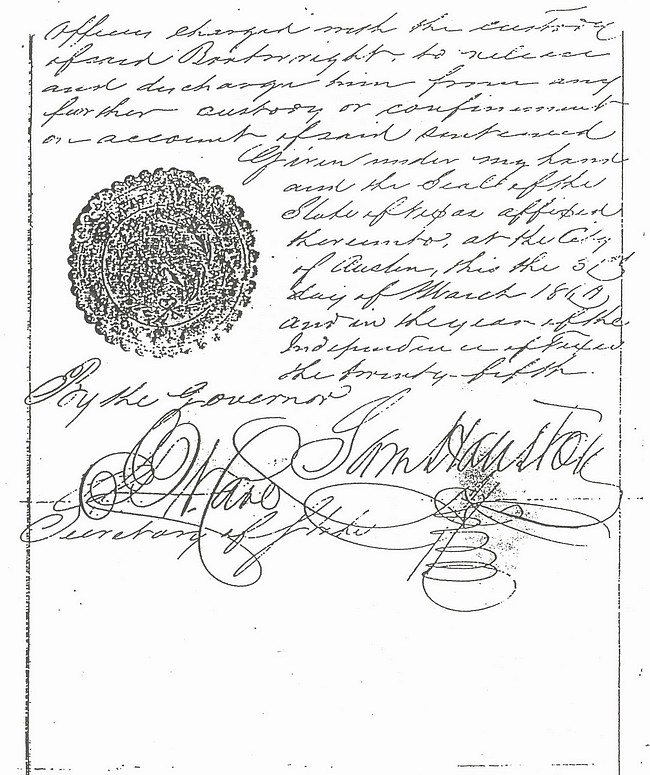 officer charged with the custody
of said Boatwright, to release
and discharge him from any
further custody or confinement
on account of said sentence
Given under my hand
and the Seal of the
State of Texas affixed
thereunto, at the City
of Austin, this the
day of March
and in the year of the
Independence of Texas
the twenty-fifth.
By the Governor
Sam Houston
Secretary of State